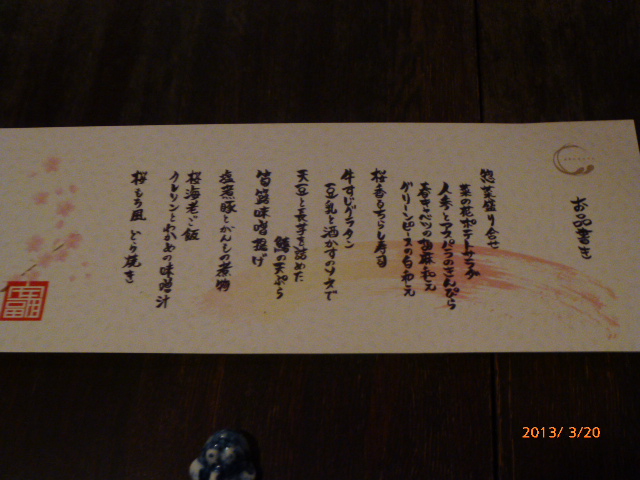 お品書き
惣菜盛り合せ
菜の花ポテトサラダ
人参とアスパラのきんぴら
春キャベツの胡麻和え
グリーンピースの白和え
桜香るちらし寿司
牛すじグラタン
豆乳と酒かすのソースで
天豆と長芋を詰めた
鰆の天ぷら
筍味噌揚げ
塩煮豚とがんもの煮物
桜海老ご飯
クレソンとわかめの味噌汁
桜もち風 どら焼き
2013/ 3/20